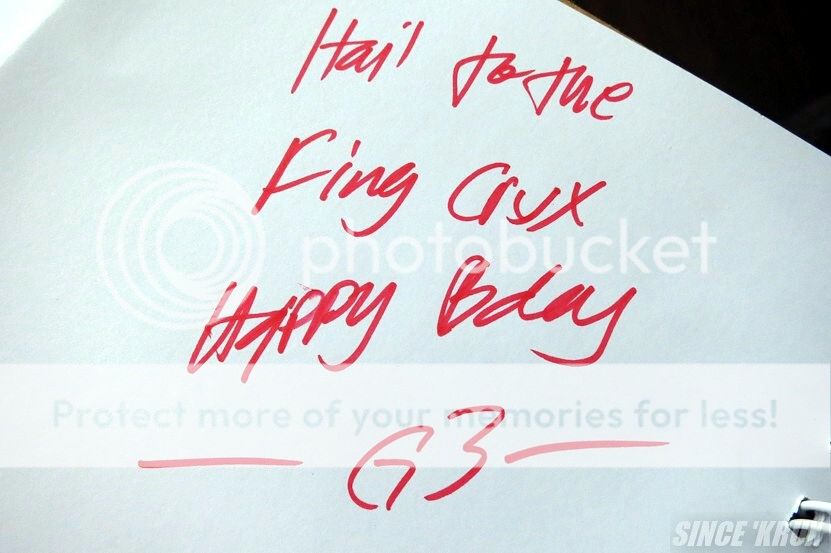 Hail to the
King Crux
photobucket
Happy Bday
Protect more of your memories for less!
G3
SINCE 'KRUX